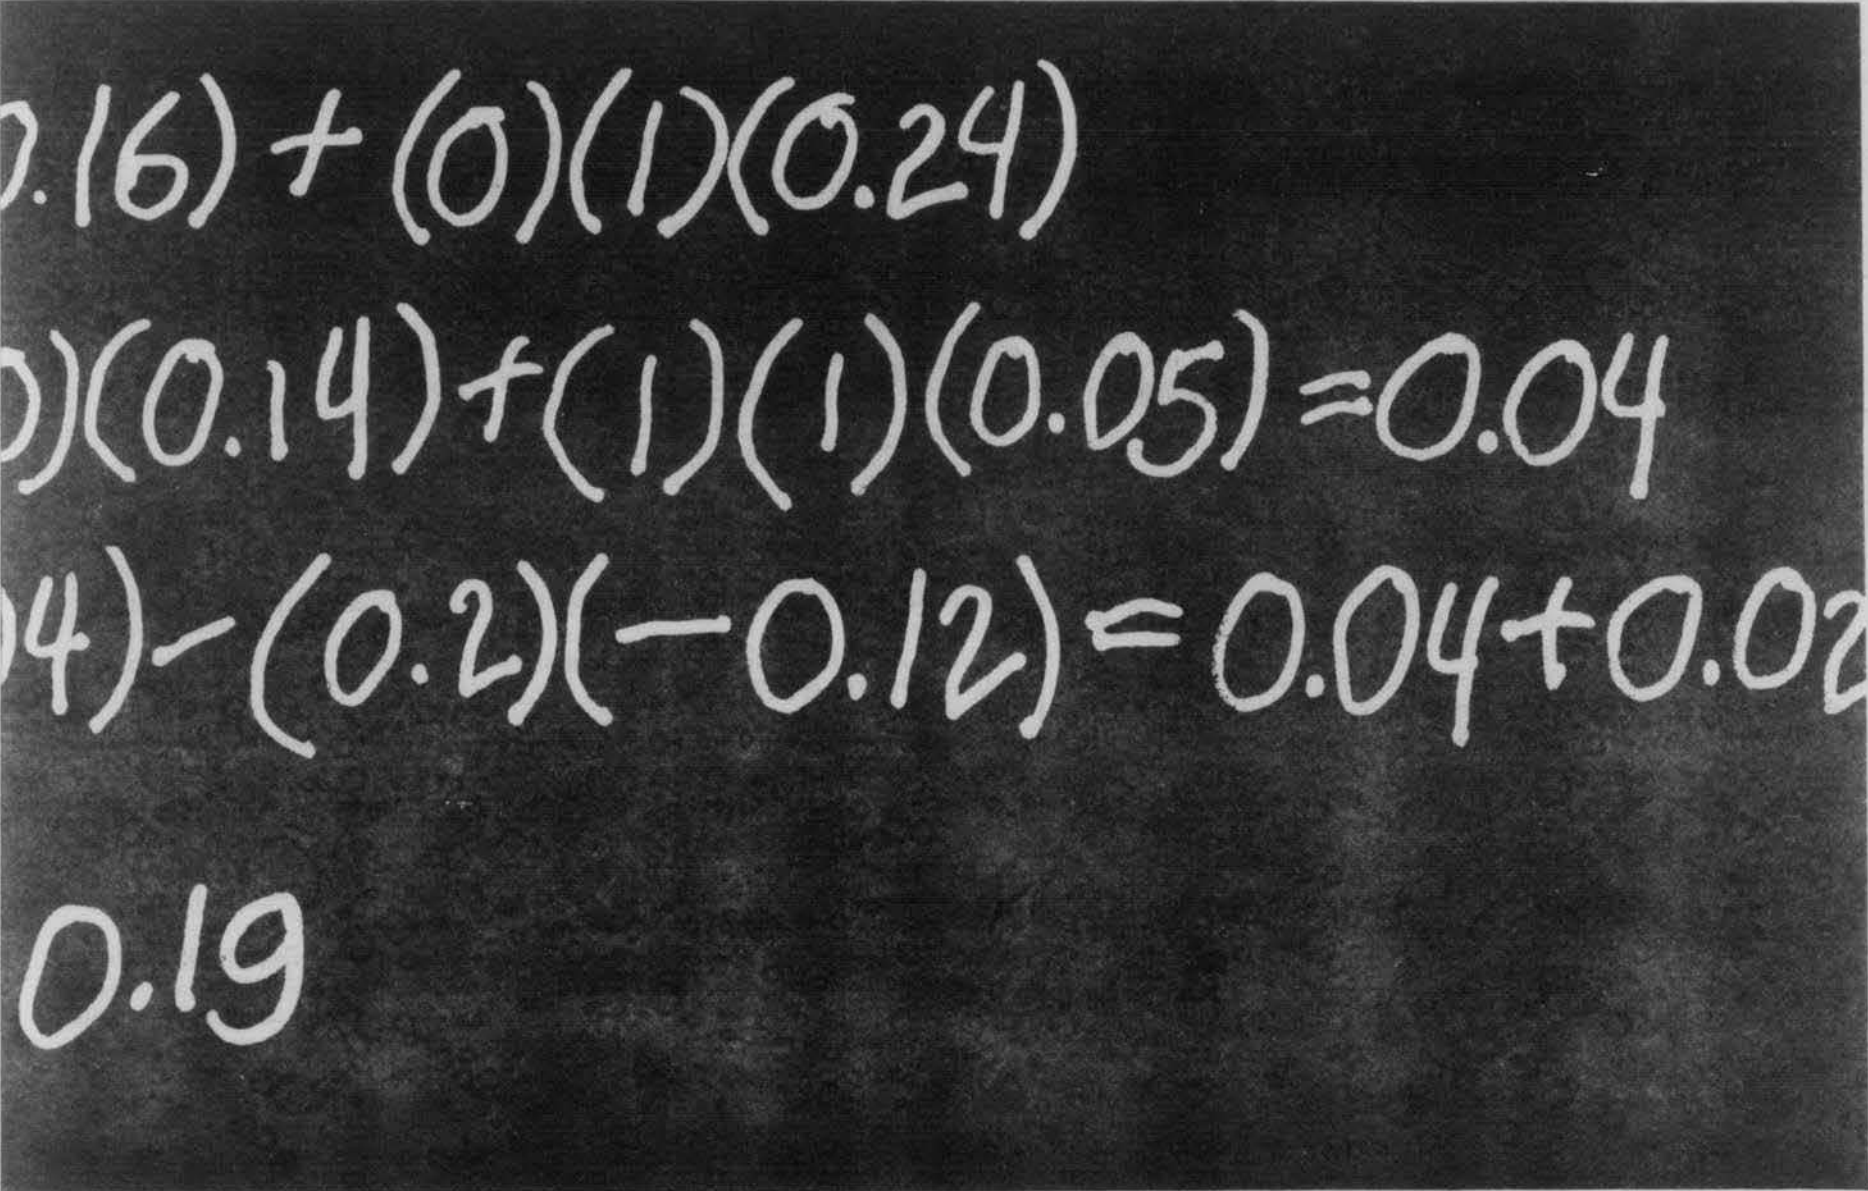 0.16) + (0)(1)(0.24)
0)(0.14)+(1)(1)(0.05)=0.04
04)-(0.2)(-0.12)=0.04+0.02
0.19